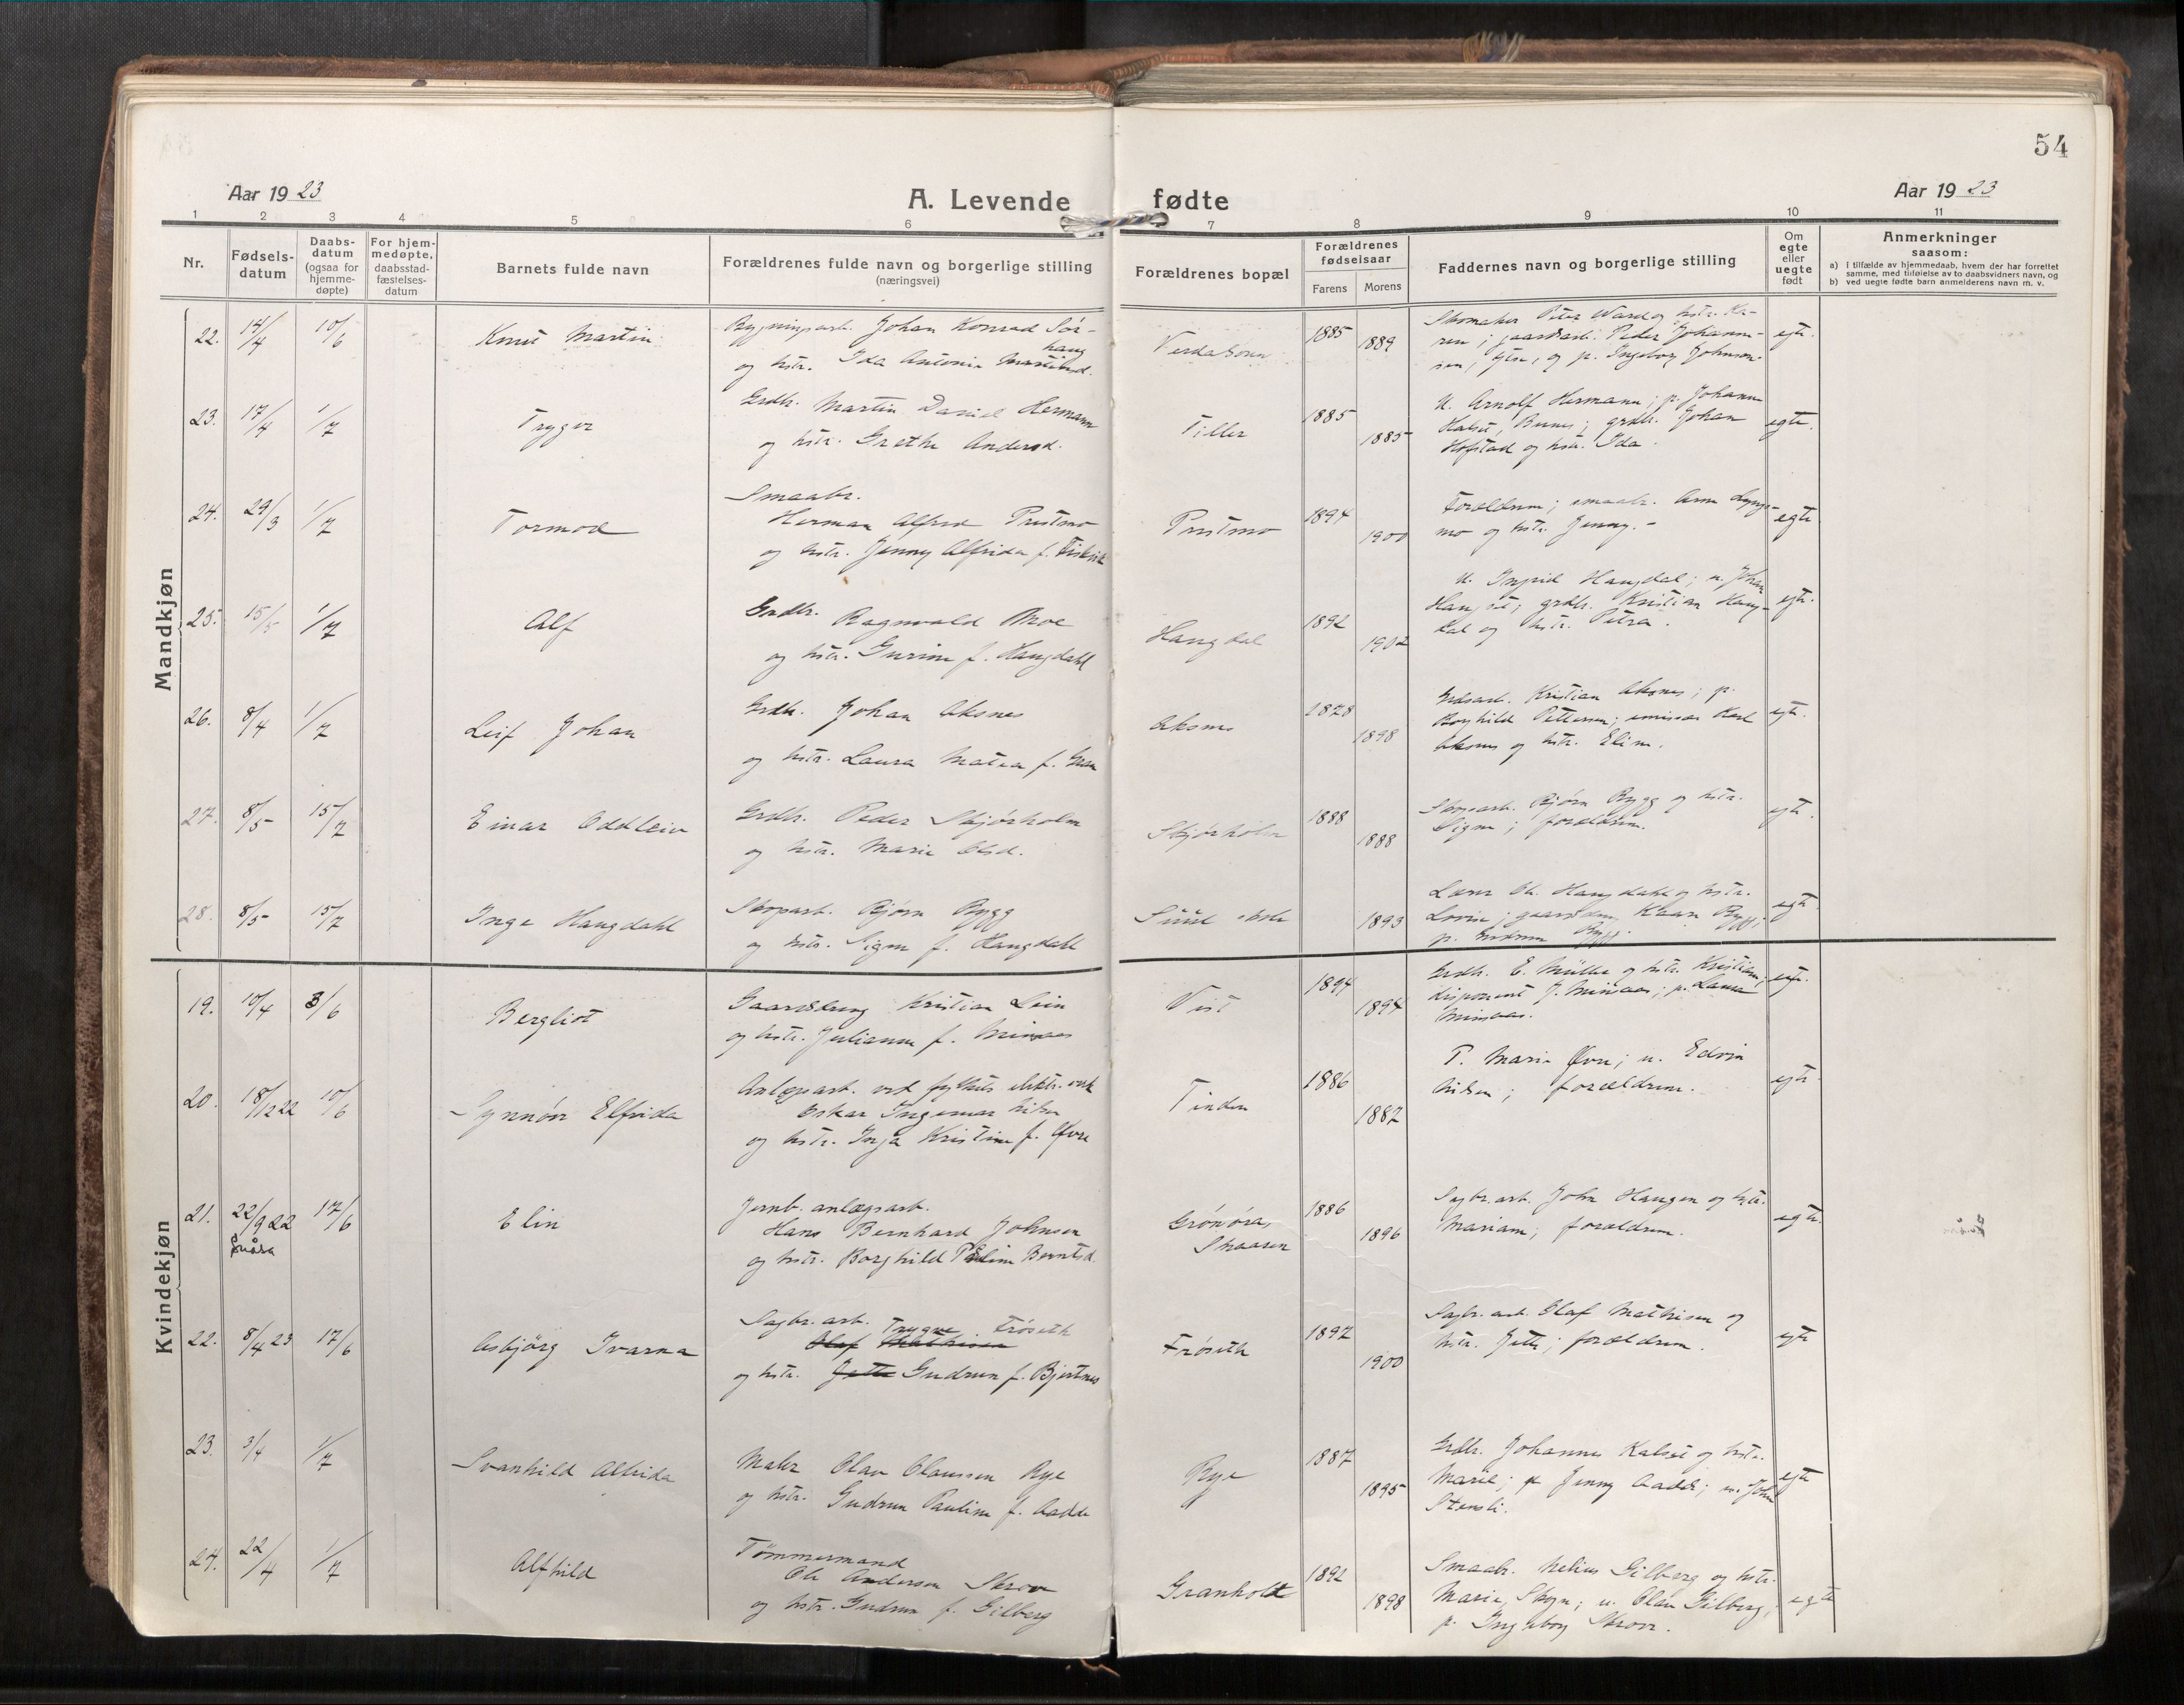 54
Aar 1923
A. Levende fødte
Aar 1923
1 2 3 4 5 6 7 8 9 10 11
Nr.
Fødsels-
datum
Daabs-
datum
(ogsaa for
hjemme-
døpte)
For hjem-
medøpte,
daabsstad-
fæstelses-
datum
Barnets fulde navn
Forældrenes fulde navn og borgerlige stilling
(næringsvei)
Forældrenes bopæl
Forældrenes
fødselsaar
Farens Morens
Faddernes navn og borgerlige stilling
Om
egte
eller
uegte
født
Anmerkninger
saasom:
a) i tilfælde av hjemmedaab, hvem der har forrettet
samme, med tilføielse av to daabsvidners navn, og
b) ved uegte fødte barn anmelderens navn m. v.
Mandkjøn
22. 14/4 10/6 Knut Martin
Bygningsarb. Johan Konrad Sör-
haug
og hstr. Ida Antonie
1885 1889
Skomaker Peter Ward og hstr. Ka-
ren; gaardarb. Peder Johann-
sen, og p. Ingeborg Johnson
egte.
23. 17/4 1/7 Trygve
Grdbr. Martin Daniel Hermann
og hstr. Grethe Andersd.
Tiller
1885 1885
U. Arnolf Hermann; p. Johanne
Kalset, grdbr. Johan
Hofstad og hstr. Ida.
egte.
24. 29/3 1/7 Tormod
Smaabr.
Herman Alfred Prestmo
og hstr. Jenny Alfrida f.
Prestmo
1894 1900
Forældrene; smaabr. Arne Lyngs-
mo og hstr. Jenny.-
egte
25. 15/5 1/7 Alf
Grdbr. Ragnvald Moe
og hstr. Gurine f. Haugdahl
Haugdal
1892 1902
U. Ingrid Haugdal; u. Johan
grdbr. Kristian Haug-
dal og hstr. Petra.
egte.
26. 8/4 1/7 Leif Johan
Grdbr. Johan Aksnes
og hstr. Laura Matea f.
Aksnes
1878 1898
Grdsarb. Kristian Aksnes; p.
Borghild Pettersen; emissær Karl
Aksnes og hstr. Eline.
egte.
27. 8/5 15/7 Einar Oddleiv
Grdbr. Peder Skjörholm
og hstr. Marie Olsd.
Skjörholm
1888 1888
Skogsarb. Björn Bygg og hstr.
Signe; forældrene.
egte.
28. 8/5 15/7 Inge Haugdahl
Skogsarb. Björn Bygg
og hstr. Signe f. Haugdahl
1893
Lærer Ol. Haugdahl og hstr.
Lovise; gaardsdr. Kaare Bygg;
p. Gudrun Bygg.
egte.
Kvindekjøn
19. 10/4 3/6 Bergliot
Gaardsbrug Kristian Lein
og hstr. Julianne f. Minsaas
Vist
1894 1894
Grdbr. E. Müller og hstr. Kristiane,
disponent J. Minsaas; p. Laura
Minsaas.
egte.
20. 18/12 22 10/6 Synnöve Elfrida
Anlægsarb. ved fylkets elektr. verk
Oskar Ingemar Nilsen
og hstr. Inga Kristine f. Øvre
Tinden
1886 1882
P. Marie Øvre; u. Edvin
Nilsen; forældrene.
egte.
21. 22/9 22 17/6 Elin
Snåsa
Jernb. anlægsarb.
Hans Bernhard Johnsen
og hstr. Borghild Pauline Berntsd.
Grönöra,
Snaasen
1886 1896
Sagbr. arb. John Haugen og hstr.
Mariane; forældrene.
egte.
22. 8/4 23 17/6 Asbjörg Ivarna
Sagbr. arb. Trygve Fröseth
Olaf Mathisen
og hstr. Jette Gudrun f. Bjertnes
Fröseth
1897 1900
Sagbr. arb. Olaf Mathisen og
hstr. Jette; forældrene.
egte
23. 3/4 1/7 Svanhild Alfrida
Maler Olav Olaussen Rye
og hstr. Gudrun Pauline f. Aadde
Rye
1887 1895
Grdbr. Johannes Kalset og hstr.
Marie; p Jenny Aadde; u. John
Stensli.
egte
24. 22/4 1/7 Alfhild
Tömmermand
Ole Andersen Skrove
og hstr. Gudrun f. Gilberg
Granholt
1892 1898
Smaabr. Nelius Gilberg og hstr.
Marie, Skogn; u. Olav Gilberg,
p. Ingeborg Skrove.
egte